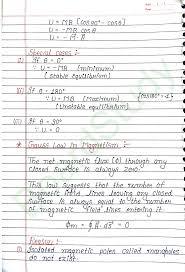 U = MB (cos90° - cosθ)
U = -MB cosθ
U = -M⃗.B⃗
Special cases :-
(i) If θ = 0°
∵ U = -MB (minimum)
(stable equilibrium)
(ii) If θ = 180°
∵ U = MB (Maximum)
(Unstable equilibrium).
(iii) If θ = 90°
∵ U = 0
* Gauss Law in Magnetism :-
The net magnetic flux (ϕ) through any
closed surface is always zero.
This law suggests that the number of
magnetic field lines leaving any closed
surface is always equal to the number
of magnetic field lines entering it.
Φm = ∮ B⃗. dS⃗ = 0
Reason :-
(i) Isolated magnetic poles called monopoles
do not exist.